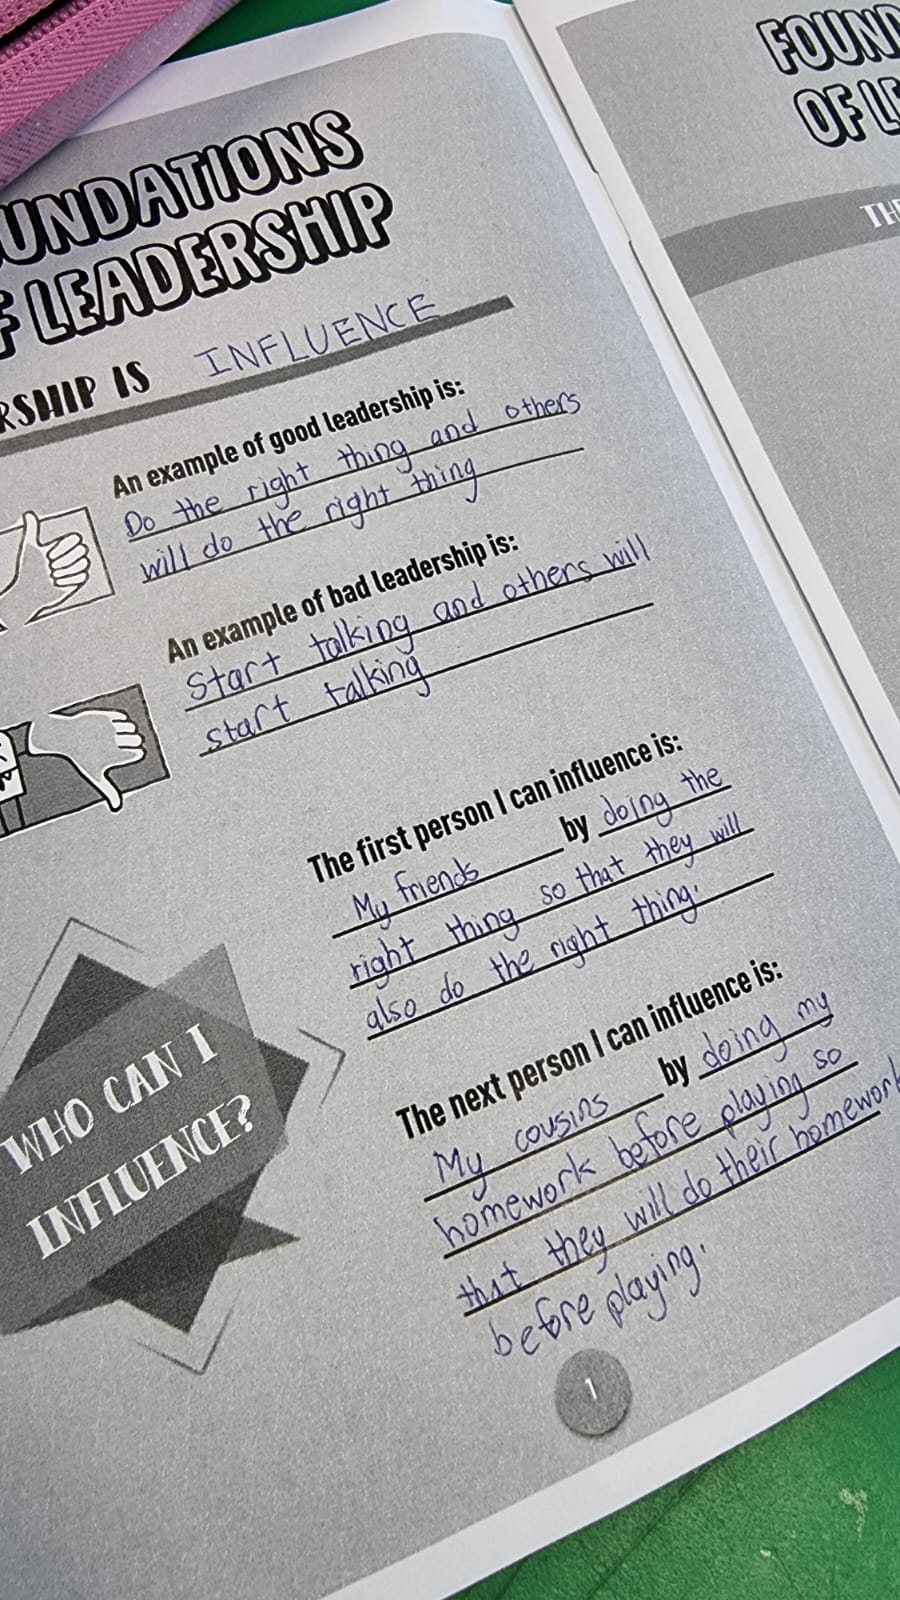 UNDATIONS
F LEADERSHIP
RSHIP IS INFLUENCE
An example of good leadership is:
Do the right thing and others
will do the right thing
An example of bad leadership is:
Start talking and others will
start talking
The first person I can influence is:
My friends by doing the
right thing so that they will
also do the right thing.
WHO CAN I
INFLUENCE?
The next person I can influence is:
My cousins by doing my
homework before playing so
that they will do their homework
before playing.
1
FOUND
OF LE
THE